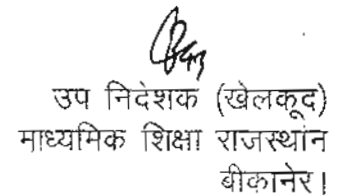 उप निदेशक (खेलकूद)
माध्यमिक शिक्षा राजस्थान
बीकानेर।